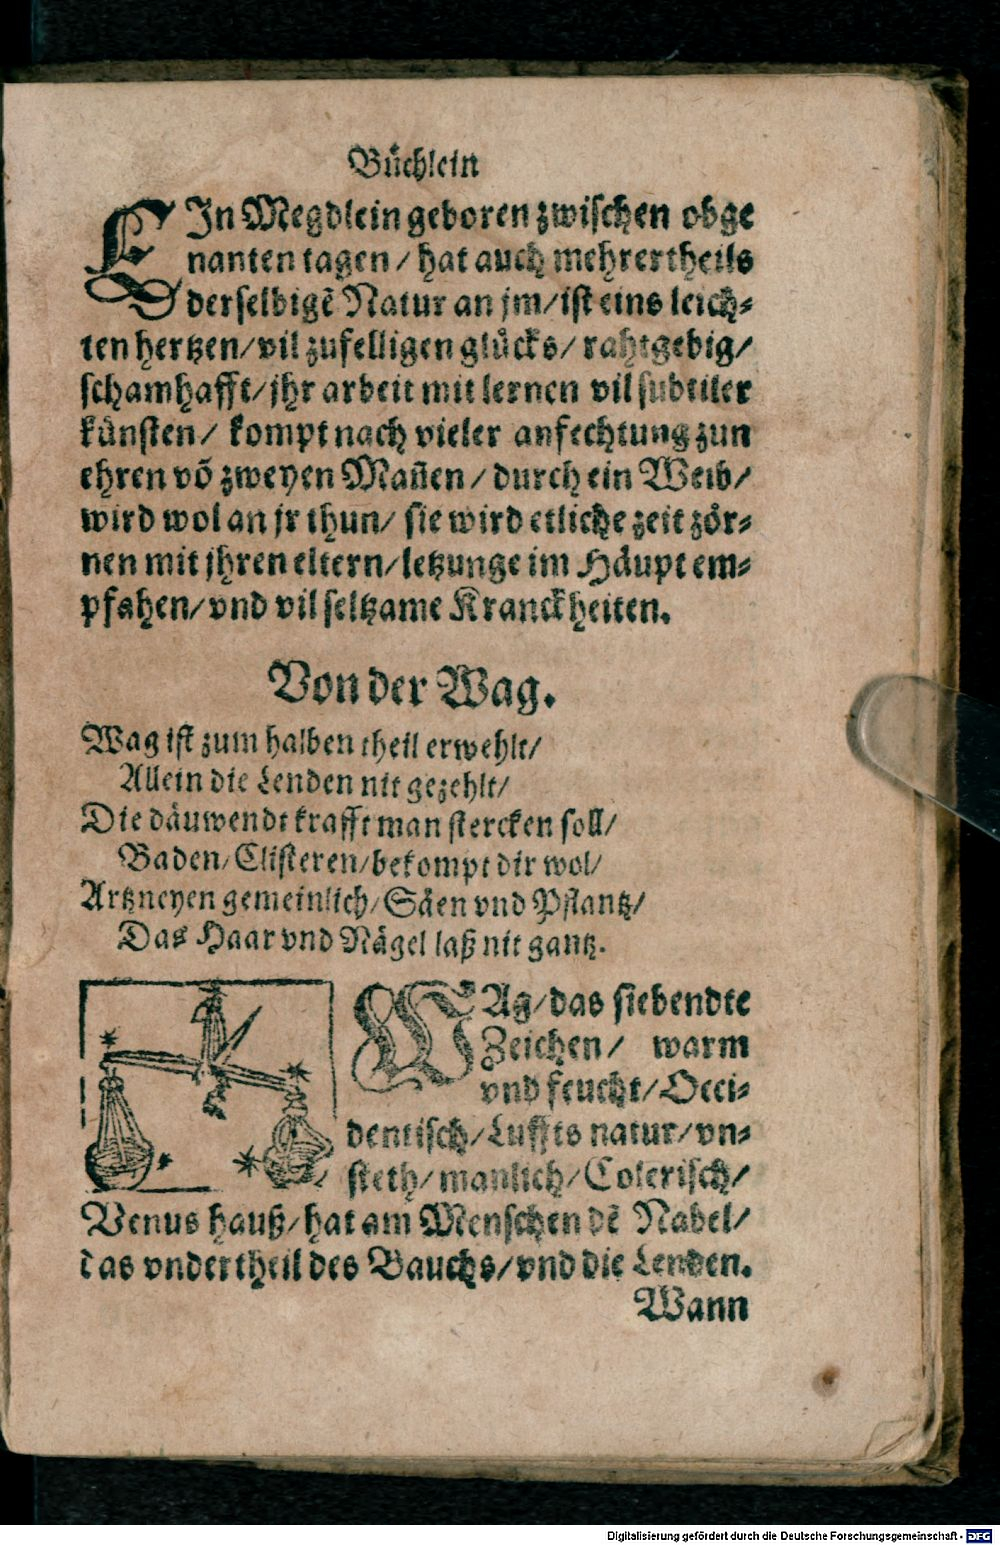 Büchlein
EIn Megdlein geboren zwischen obge
nanten tagen / hat auch mehrertheils
derselbigē Natur an jm / ist eins leich⸗
ten hertzen / vil zufelligen glücks / rahtgebig /
schamhafft / jhr arbeit mit lernen vil subtiler
künsten / kompt nach vieler anfechtung zun
ehren võ zweyen Mañen / durch ein Weib /
wird wol an jr thun / sie wird etliche zeit zör⸗
nen mit jhren eltern / letzunge im Häupt em⸗
pfahen / vnd vil seltzame Kranckheiten.
Von der Wag.
Wag ist zum halben theil erwehlt /
Allein die Lenden nit gezehlt /
Die däuwendt krafft man stercken soll /
Baden / Clisteren / bekompt dir wol /
Artzneyen gemeinlich / Säen vnd Pflantz /
Das Haar vnd Nägel laß nit gantz.
WAg / das siebendte
Zeichen / warm
vnd feucht / Occi⸗
dentisch / Luffts natur / vn⸗
steth / manlich / Colerisch /
Venus hauß / hat am Menschen dē Nabel /
das vndertheil des Bauchs / vnd die Lenden.
Wann
Digitalisierung gefördert durch die Deutsche Forschungsgemeinschaft - DFG